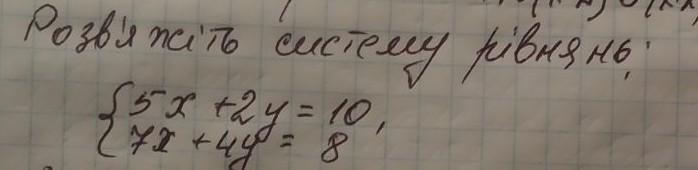 Розв'яжіть систему рівнянь:
{5x + 2y = 10,
7x + 4y = 8